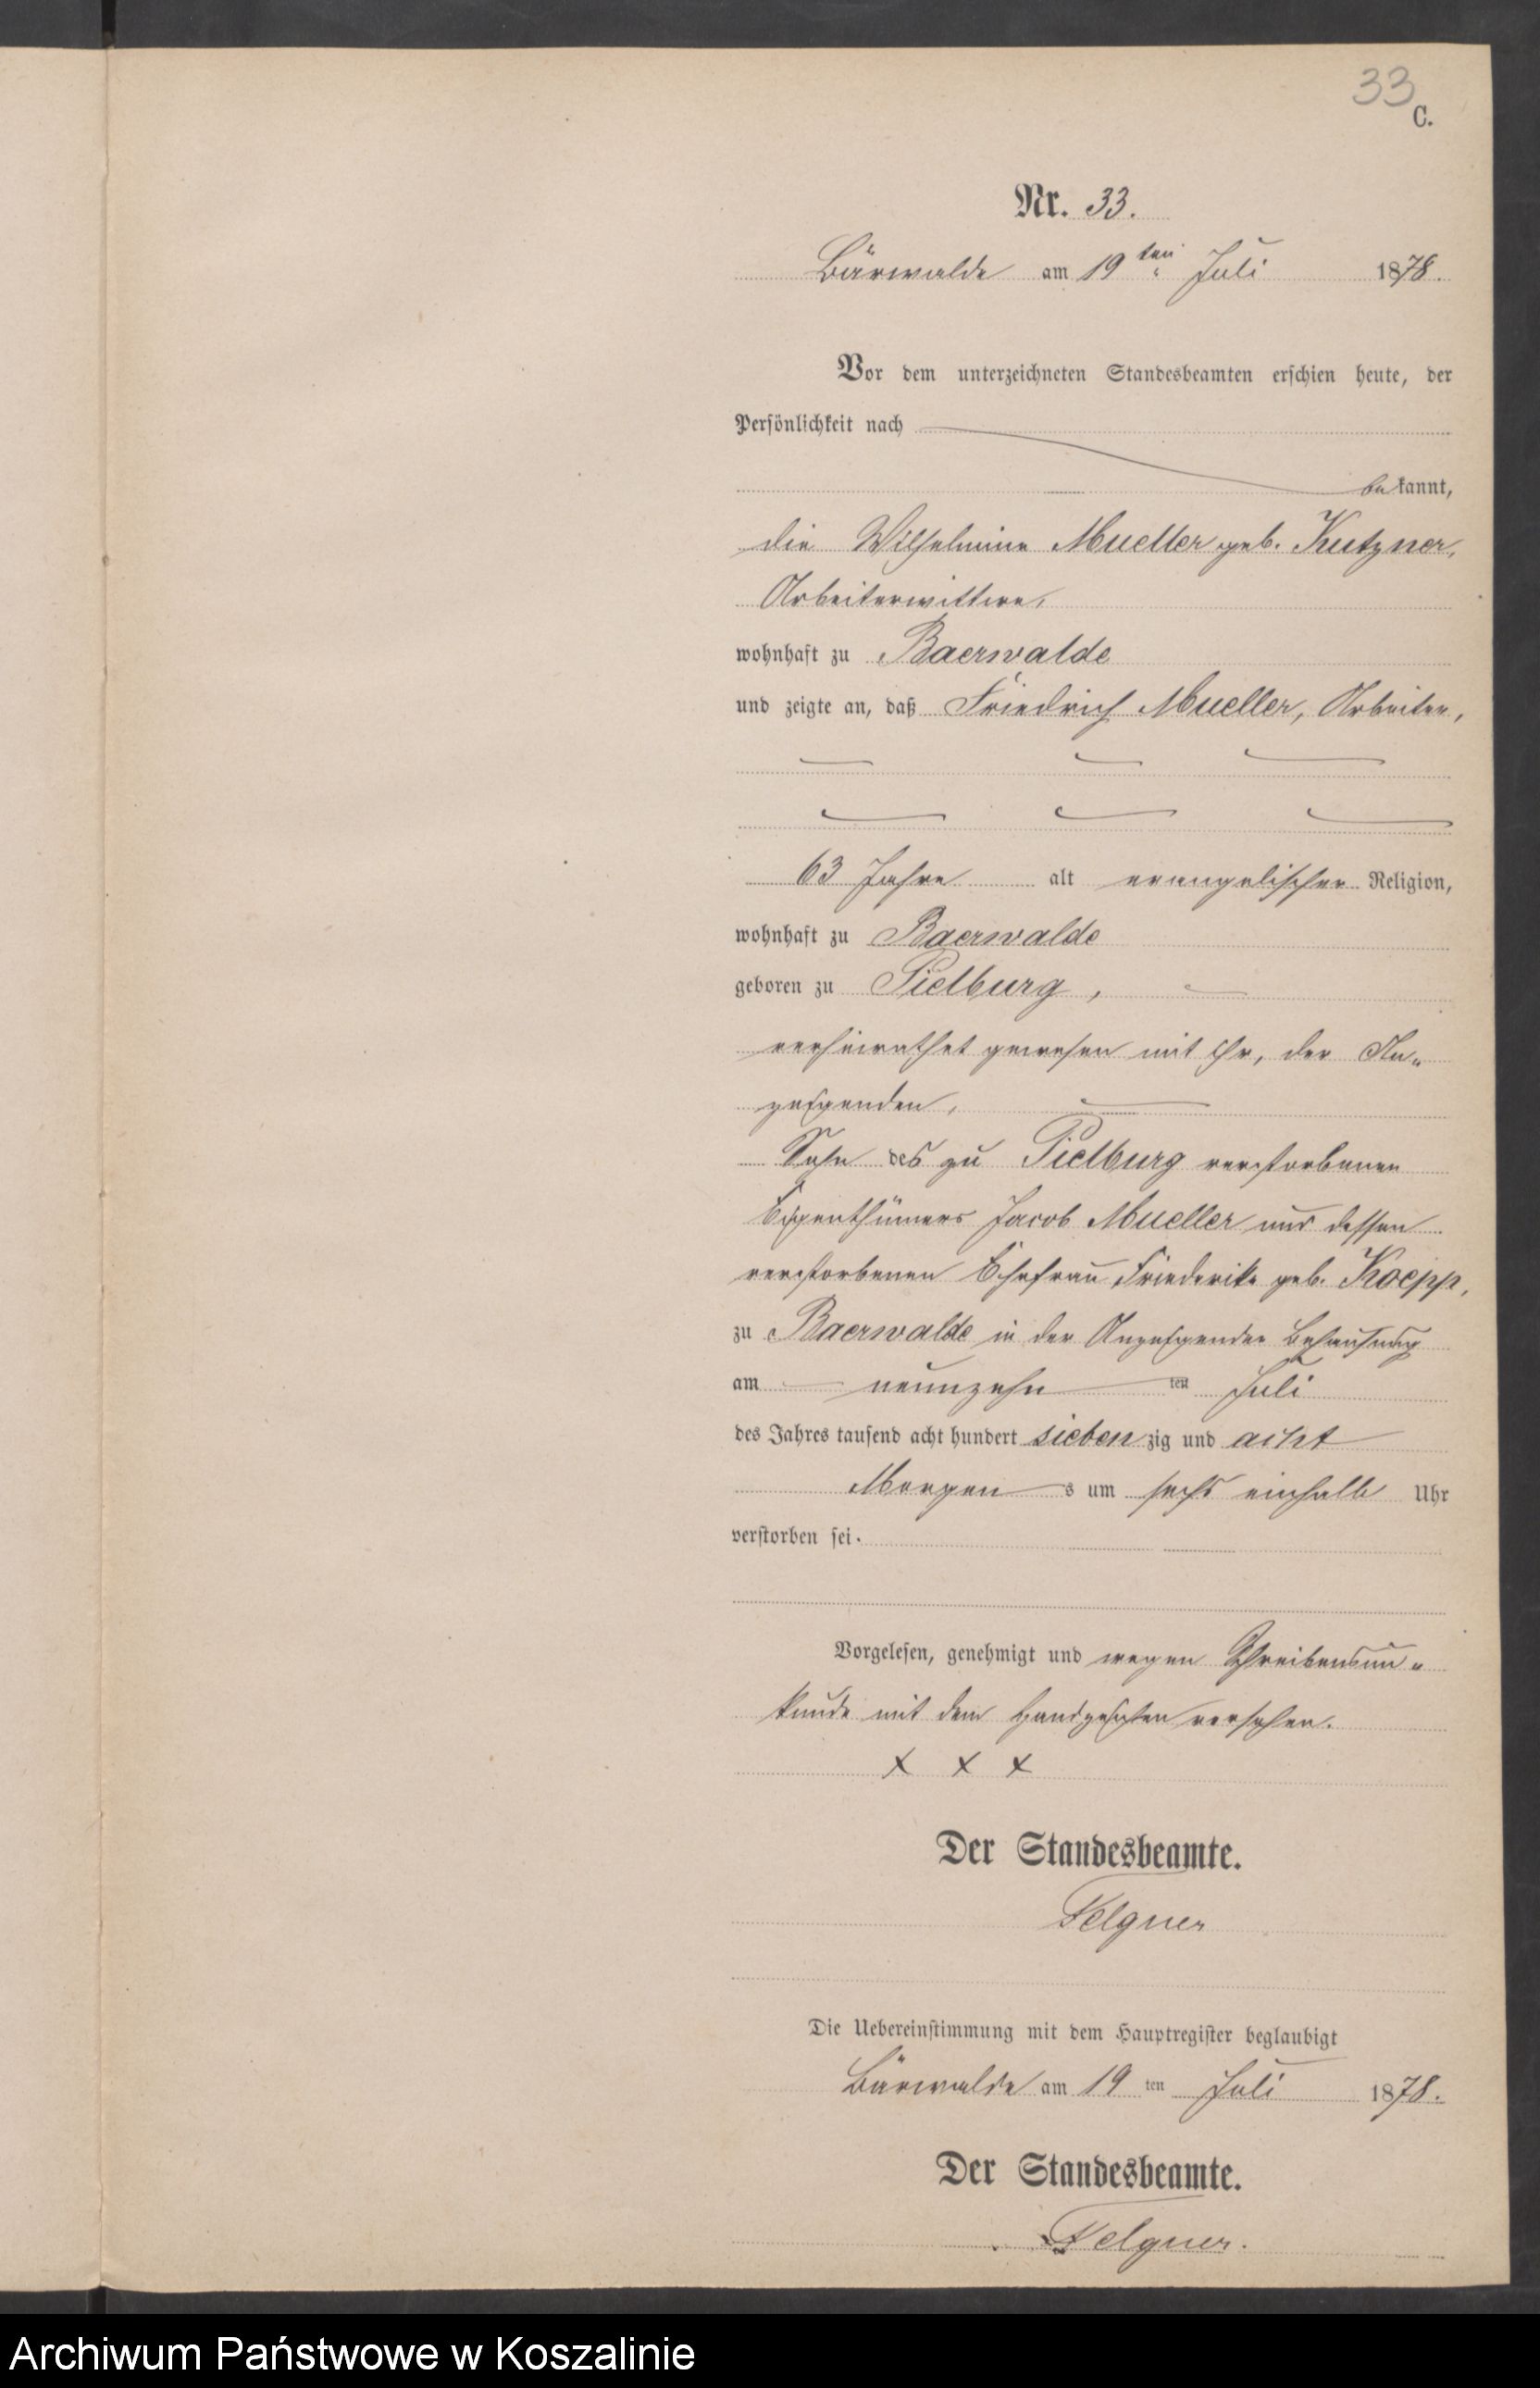 33
C.
Nr. 33.
Bärwalde am 19ten Juli 1878.
Vor dem unterzeichneten Standesbeamten erschien heute, der
Persönlichkeit nach
bekannt,
die Wilhelmine Mueller geb. Kutzner,
Arbeiterwittwe,
wohnhaft zu Baerwalde
und zeigte an, daß Friedrich Mueller, Arbeiter,
63 Jahre alt evangelischer Religion,
wohnhaft zu Baerwalde
geboren zu Pielburg,
verheirathet gewesen mit ihr, der An-
zeigenden,
Sohn des zu Pielburg verstorbenen
Eigenthümers Jacob Mueller und dessen
verstorbenen Ehefrau Friederike geb. Koepp,
zu Baerwalde in der Anzeigenden Behausung
am neunzehn ten Juli
des Jahres tausend acht hundert siebenzig und acht
Morgens um sechs einhalb Uhr
verstorben sei.
Vorgelesen, genehmigt und wegen Schreibensun-
kunde mit dem Handzeichen versehen.
x x x
Der Standesbeamte.
Felgner
Die Uebereinstimmung mit dem Hauptregister beglaubigt
Bärwalde am 19 ten Juli 1878.
Der Standesbeamte.
Felgner.
Archiwum Państwowe w Koszalinie